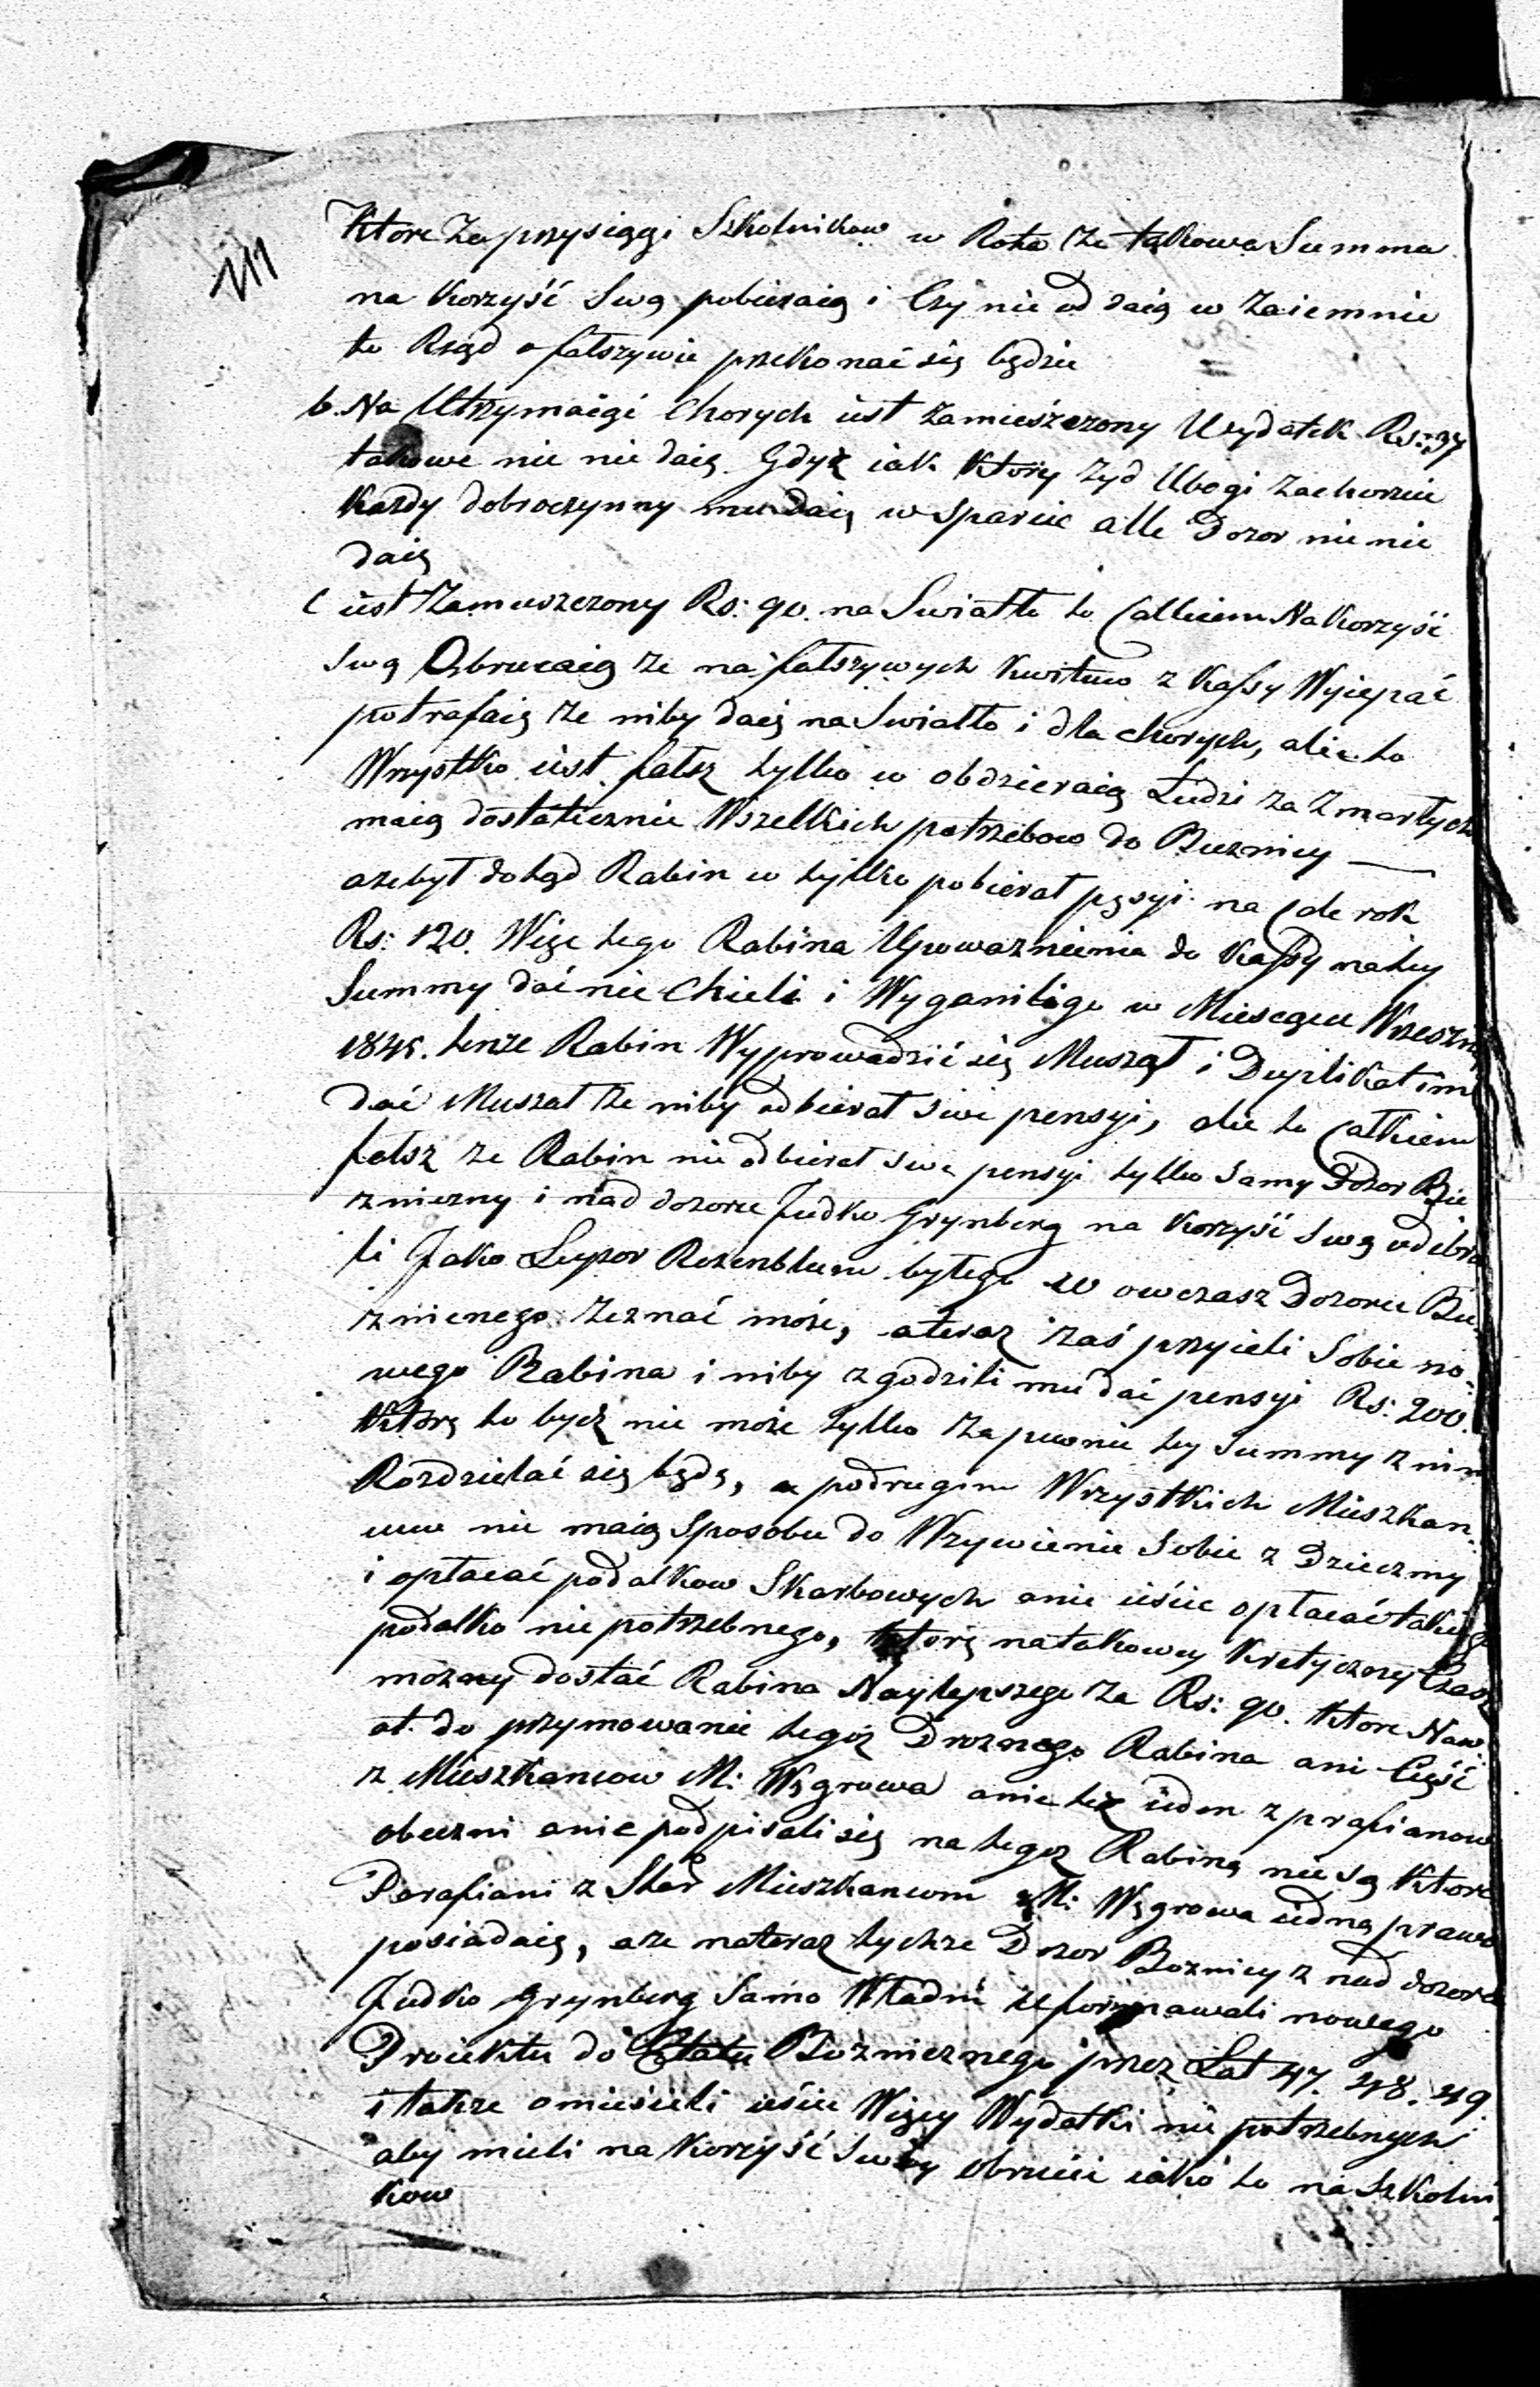 Ktore za przysiggi Szkolnikow w Rota że takowa Summa
na korzyść Swą pobieraią i Czy nie oddaią w zaiemnie
to Rząd o fałszywie przekonać się będzie
b. Na Utrzymaigi Chorych iest zamieszczony Wydatek Rs: 37
takowe nic nie daią. Gdyż iak Ktory żyd Ubogi zachorzie
Każdy dobroczynny mu daią w sparcie alle Dozor nic nie
daią
C iest Zamieszczony Rs: 90. na Swiatło to Całkiem Na korzyść
Swą Obrucaią że na fałszywych kwitow z Kassy Wyiepać
potrafaią że niby daią na Swiatło i dla chorych, ale to
Wszystko iest fałsz tylko w obdzieraią Ludzi za Zmarłych
maią dostatecznie Wszelkich potrzebow do Buznicy —
azebył dotąd Rabin w tylko pobierał pęsyi na Cole rok
Rs: 120. Więc tego Rabina Upowaznienia do Kassy na tey
Summy dać nie Chieli i Wyganiligo w Miesęcu Wrześn
1845. tenże Rabin Wyprowadzić się Muszał i Duplikat im
dać Muszał że niby odbierał swe pensyi, ale to Całkiem
fałsz że Rabin nie odbierał swe pensyi tylko Samy Dozor Bu
zniczny i nad dozorca Judko Grynberg na korzyść swą odebra
li Jako Leyzor Rozenblum byłego w owczasz Dozoru Bu
znicnego zeznać może, a teraz zaś przyieli Sobie no-
wego Rabina i niby zgodzili mu dać pensyi Rs: 200.
Którą to być nie może tylko zapewnie tey Summy z nim
Rozdzielać się będą, a podrugim Wszystkich Mieszkan-
cow nie maią Sposobu do Wzywienie Sobie z Dziećmy
i opłacać podatkow Skarbowych anie ieście opłacać takiego
podatko nie potrzebnego, którą na takowey Kretyczney Czasz
możny dostać Rabina Naylepszego za Rs: 90. Ktore Naw
et do przymowanie tegoż Droznego Rabina ani Część
z Mieszkancow M: Węgrowa anie też ieden z prafianow
obeczni anie podpisali się na tegoż Rabiną nie są Ktore
Parafiani z Stad Mieszkancom M: Węgrowa iedną prawo
posiadaią, aże na teraz tychże Dozor Boznicy z nad dozorca
Judko Grynberg Samo Władni uformawali nowego
Proiektu do Etatu Boznicznego przez Lat 47. 48. 49.
i także omieścili ieście Więcy Wydatki nie potrzebnych
aby mieli na korzyść Swey obrucić iako to na Szkolni
kow